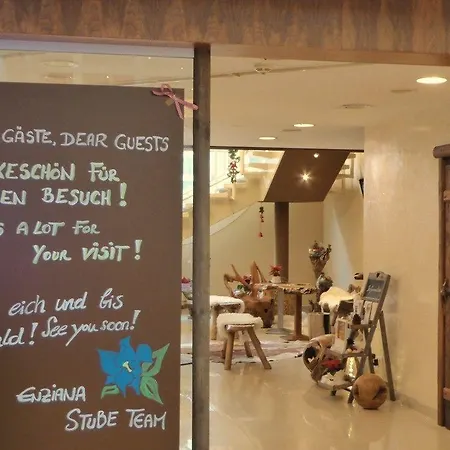 GÄSTE, DEAR GUESTS
KESCHÖN FÜR
EN BESUCH!
S A LOT FOR
YOUR VISIT!
eich und bis
ld! See you soon!
ENZIANA
STUBE TEAM